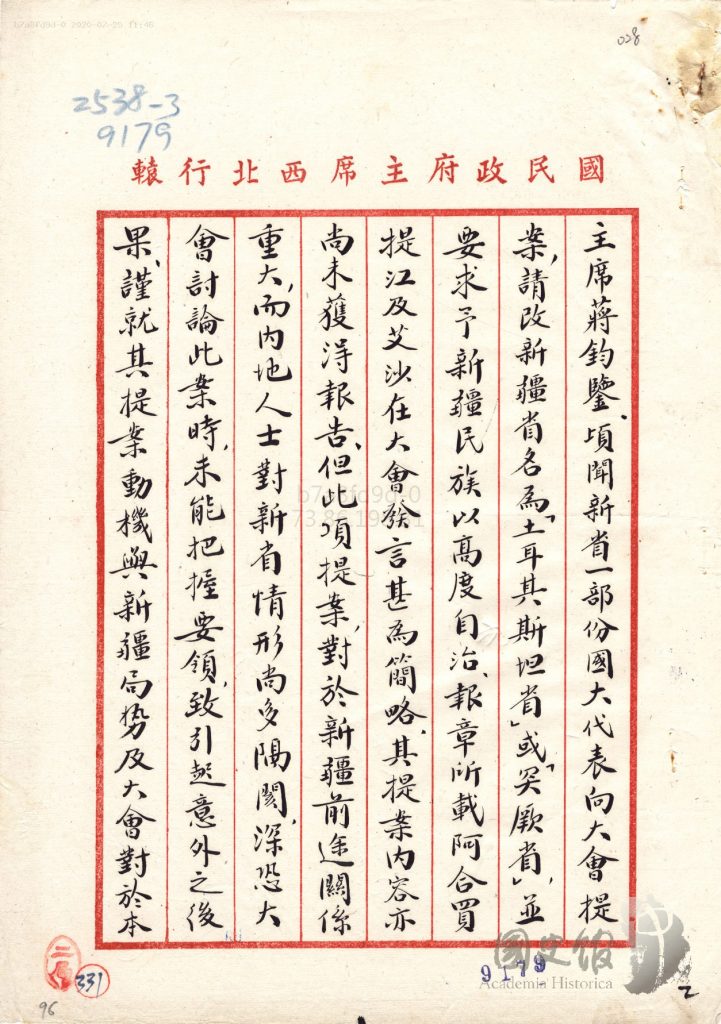 b7a8fd9d-0 2020-07-20 11:46
028
2538-3
9179
國民政府主席西北行轅
主席蔣鈞鑒、頃聞新省一部份國大代表向大會提
案，請改新疆省名為「土耳其斯坦省」或「突厥省」，並
要求予新疆民族以高度自治、報章所載阿合買
提江及艾沙在大會發言甚為簡略、其提案內容亦
尚未獲得報告、但此項提案，對於新疆前途關係
重大，而內地人士對新省情形尚多隔閡，深恐大
會討論此案時，未能把握要領，致引起意外之後
果、謹就其提案動機與新疆局势及大會對於本
331
96
9179
國史館
Academia Historica
2